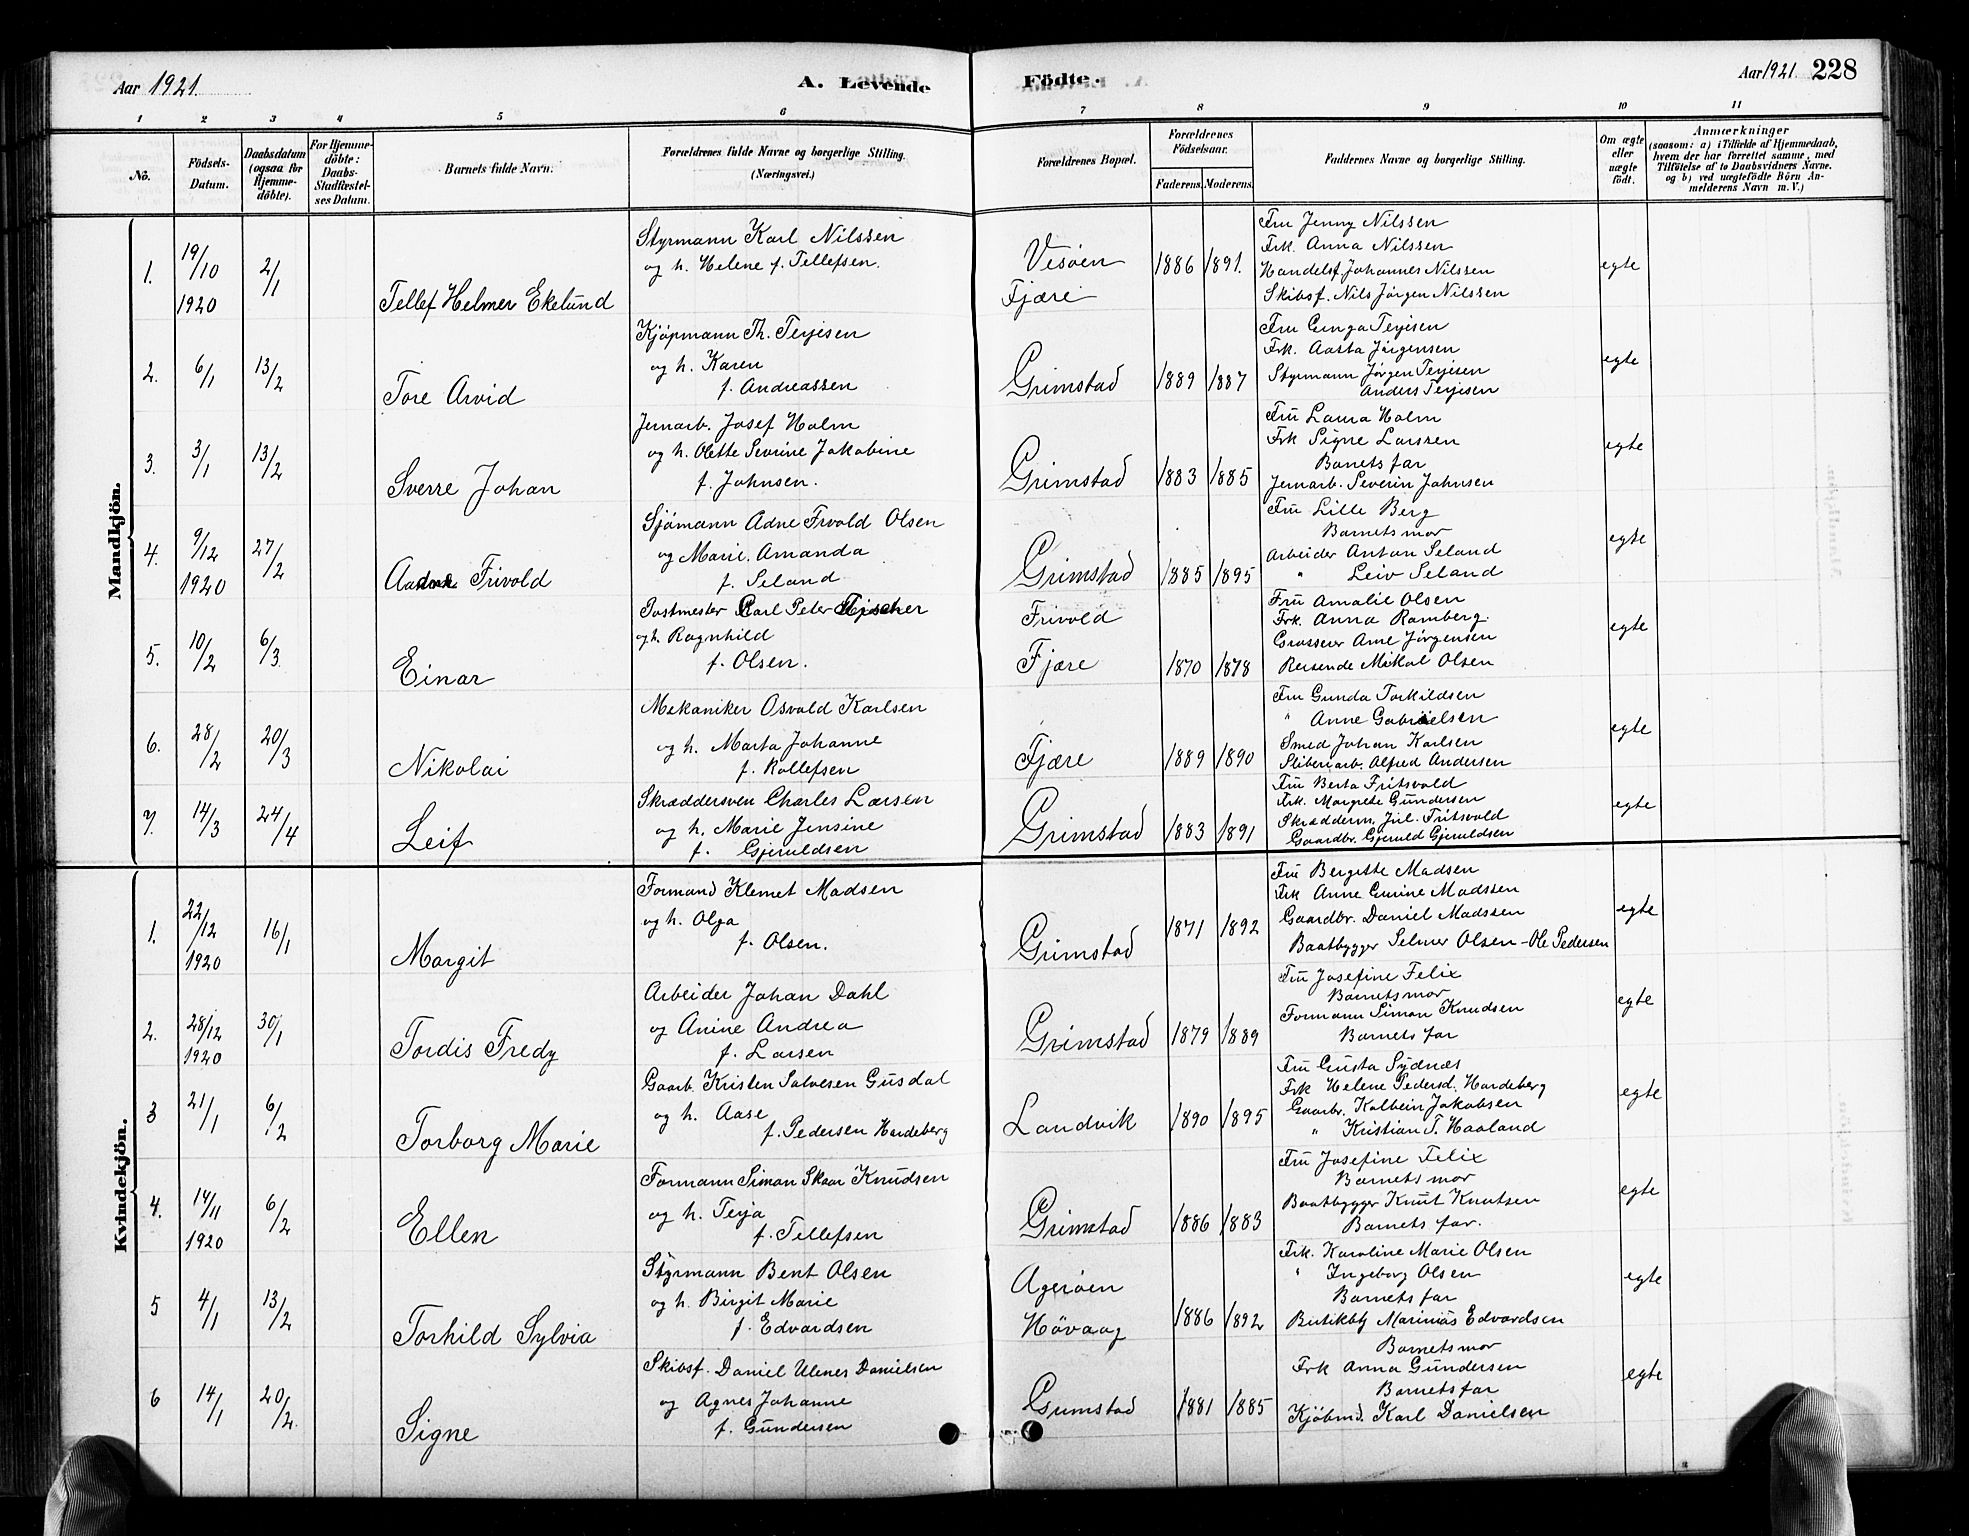 Aar 1921.
A. Levende
Födte.
Aar 1921. 228
1 2 3 4 5 6 7 8 9 10 11
No.
Födsels-Datum.
Daabsdatum (ogsaa for Hjemme-döbte).
For Hjemme-döbte: Daabs-Stadfæstel-ses Datum.
Barnets fulde Navn.
Forældrenes fulde Navne og borgerlige Stilling.
(Næringsvei.)
Forældrenes Bopæl.
Forældrenes Födselsaar.
Faderens. Moderens.
Faddernes Navne og borgerlige Stilling.
Om ægte eller uægte födt.
Anmærkninger
(saasom: a) i Tilfælde af Hjemmedaab, hvem der har forrettet samme, med Tilföielse af to Daabsvidners Navne. og b) ved uægtefödte Börn An-melderens Navn m. V.)
Mandkjön.
1. 19/10 1920 2/1 Tellef Helmer Ekelund
Styrmann Karl Nilssen
og h. Helene f. Tellefsen.
Vesøen
Fjære
1886 1891.
Fru Jenny Nilssen
Frk. Anna Nilssen
Handelsf. Johannes Nilssen
Skibsf. Nils Jørgen Nilssen
egte
2. 6/1 13/2 Tore Arvid
Kjøpmann Th. Terjesen
og h. Karen
f. Andreassen
Grimstad 1889 1887
Fru Gunga Terjesen
Frk. Aasta Jørgensen
Styrmann Jørgen Terjesen
Anders Terjesen
egte
3. 3/1 13/2 Sverre Johan
Jernarb. Josef Holm
og h. Olette Severine Jakobine
f. Johnsen.
Grimstad 1883 1885
Fru Laura Holm
Frk Signe Larssen
Barnets far
Jernarb. Severin Johnsen
egte
4. 9/12 1920 27/2 Frivold
Sjømann Adne Frvold Olsen
og Marie Amanda
f. Seland
Grimstad 1885 1895
Fru Lille Berg
Barnets mor
Arbeider Anton Seland
" Leiv Seland
egte
5. 10/2 6/3 Einar
Postmester Carl Peter Fischer
og h. Ragnhild
f. Olsen.
Frivold
Fjære 1870 1878
Fru Amalie Olsen
Frk. Anna Ramberg.
Grosserer Arne Jørgensen
Reisende Mikal Olsen
egte
6. 28/2 20/3 Nikolai
Mekaniker Osvald Karlsen
og h. Marta Johanne
f. Rollefsen
Fjære 1889 1890
Fru Gunda Torkildsen
" Anne Gabrielsen
Smed Johan Karlsen
Sliberiarb. Alfred Andersen
egte
7. 14/3 24/4 Leif
Skræddersven Charles Larsen
og h. Marie Jensine
f. Gjeruldsen
Grimstad 1883 1891
Fru Berta Fritsvold
Frk. Margrete Gundersen
Skrædderm. Jul. Fritsvold
Gaardbr. Gjeruld Gjeruldsen
egte
Kvindekjön.
1. 22/12 1920 16/1 Margit
Formand Klemet Madsen
og h. Olga
f. Olsen.
Grimstad 1871 1892
Fru Bergitte Madsen
Frk Anne Gurine Madssen
Gaardbr. Daniel Madssen
Baatbygger Selmer Olsen - Ole Pedersen
egte
2. 28/12 1920 30/1 Tordis Fredy
Arbeider Johan Dahl
og Anine Andrea
f. Larsen
Grimstad 1879 1889
Fru Josefine Felix
Barnets mor
Formann Simon Knudsen
Barnets far
egte
3 21/1 6/2 Torborg Marie
Gaarb. Kristen Salvesen Gusdal
og h. Aase
f. Pedersen Hardeberg
Landvik 1890 1895
Fru Gusta Sydnæs
Frk Helene Pedersd. Hardeberg
Gaarbr. Kolbein Jakobsen
" Kristian T. Haaland
egte
4. 14/11 1920 6/2 Ellen
Formann Simon Skaar Knudsen
og h. Terja
f. Tellefsen
Grimstad 1886 1883
Fru Josefine Felix
Barnets mor
Baatbygger Knut Knutsen
Barnets far.
egte
5 4/1 13/2 Torhild Sylvia
Styrmann Bent Olsen
og h. Birgit Marie
f. Edvardsen
Agerøen
Høvaag 1886 1892
Frk. Karoline Marie Olsen
" Ingeborg Olsen
Barnets far
Butikbty Marinius Edvardsen
egte
6 14/1 20/2 Signe
Skibsf. Daniel Ulenes Danielsen
og Agnes Johanne
f. Gundersen
Grimstad 1881 1885
Barnets mor
Frk Anna Gundersen
Barnets far
Kjøbmd. Karl Danielsen
egte